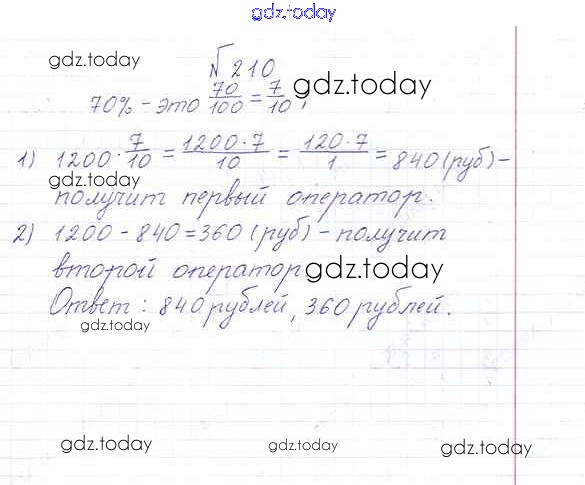 gdz.today
gdz.today № 210 gdz.today
70% - это 70/100 = 7/10 ;
1) 1200 · 7/10 = 1200·7/10 = 120·7/1 = 840 (руб) -
gdz.today
получит первый оператор.
2) 1200 - 840 = 360 (руб) - получит
второй оператор gdz.today
Ответ : 840 рублей, 360 рублей.
gdz.today
gdz.today gdz.today gdz.today